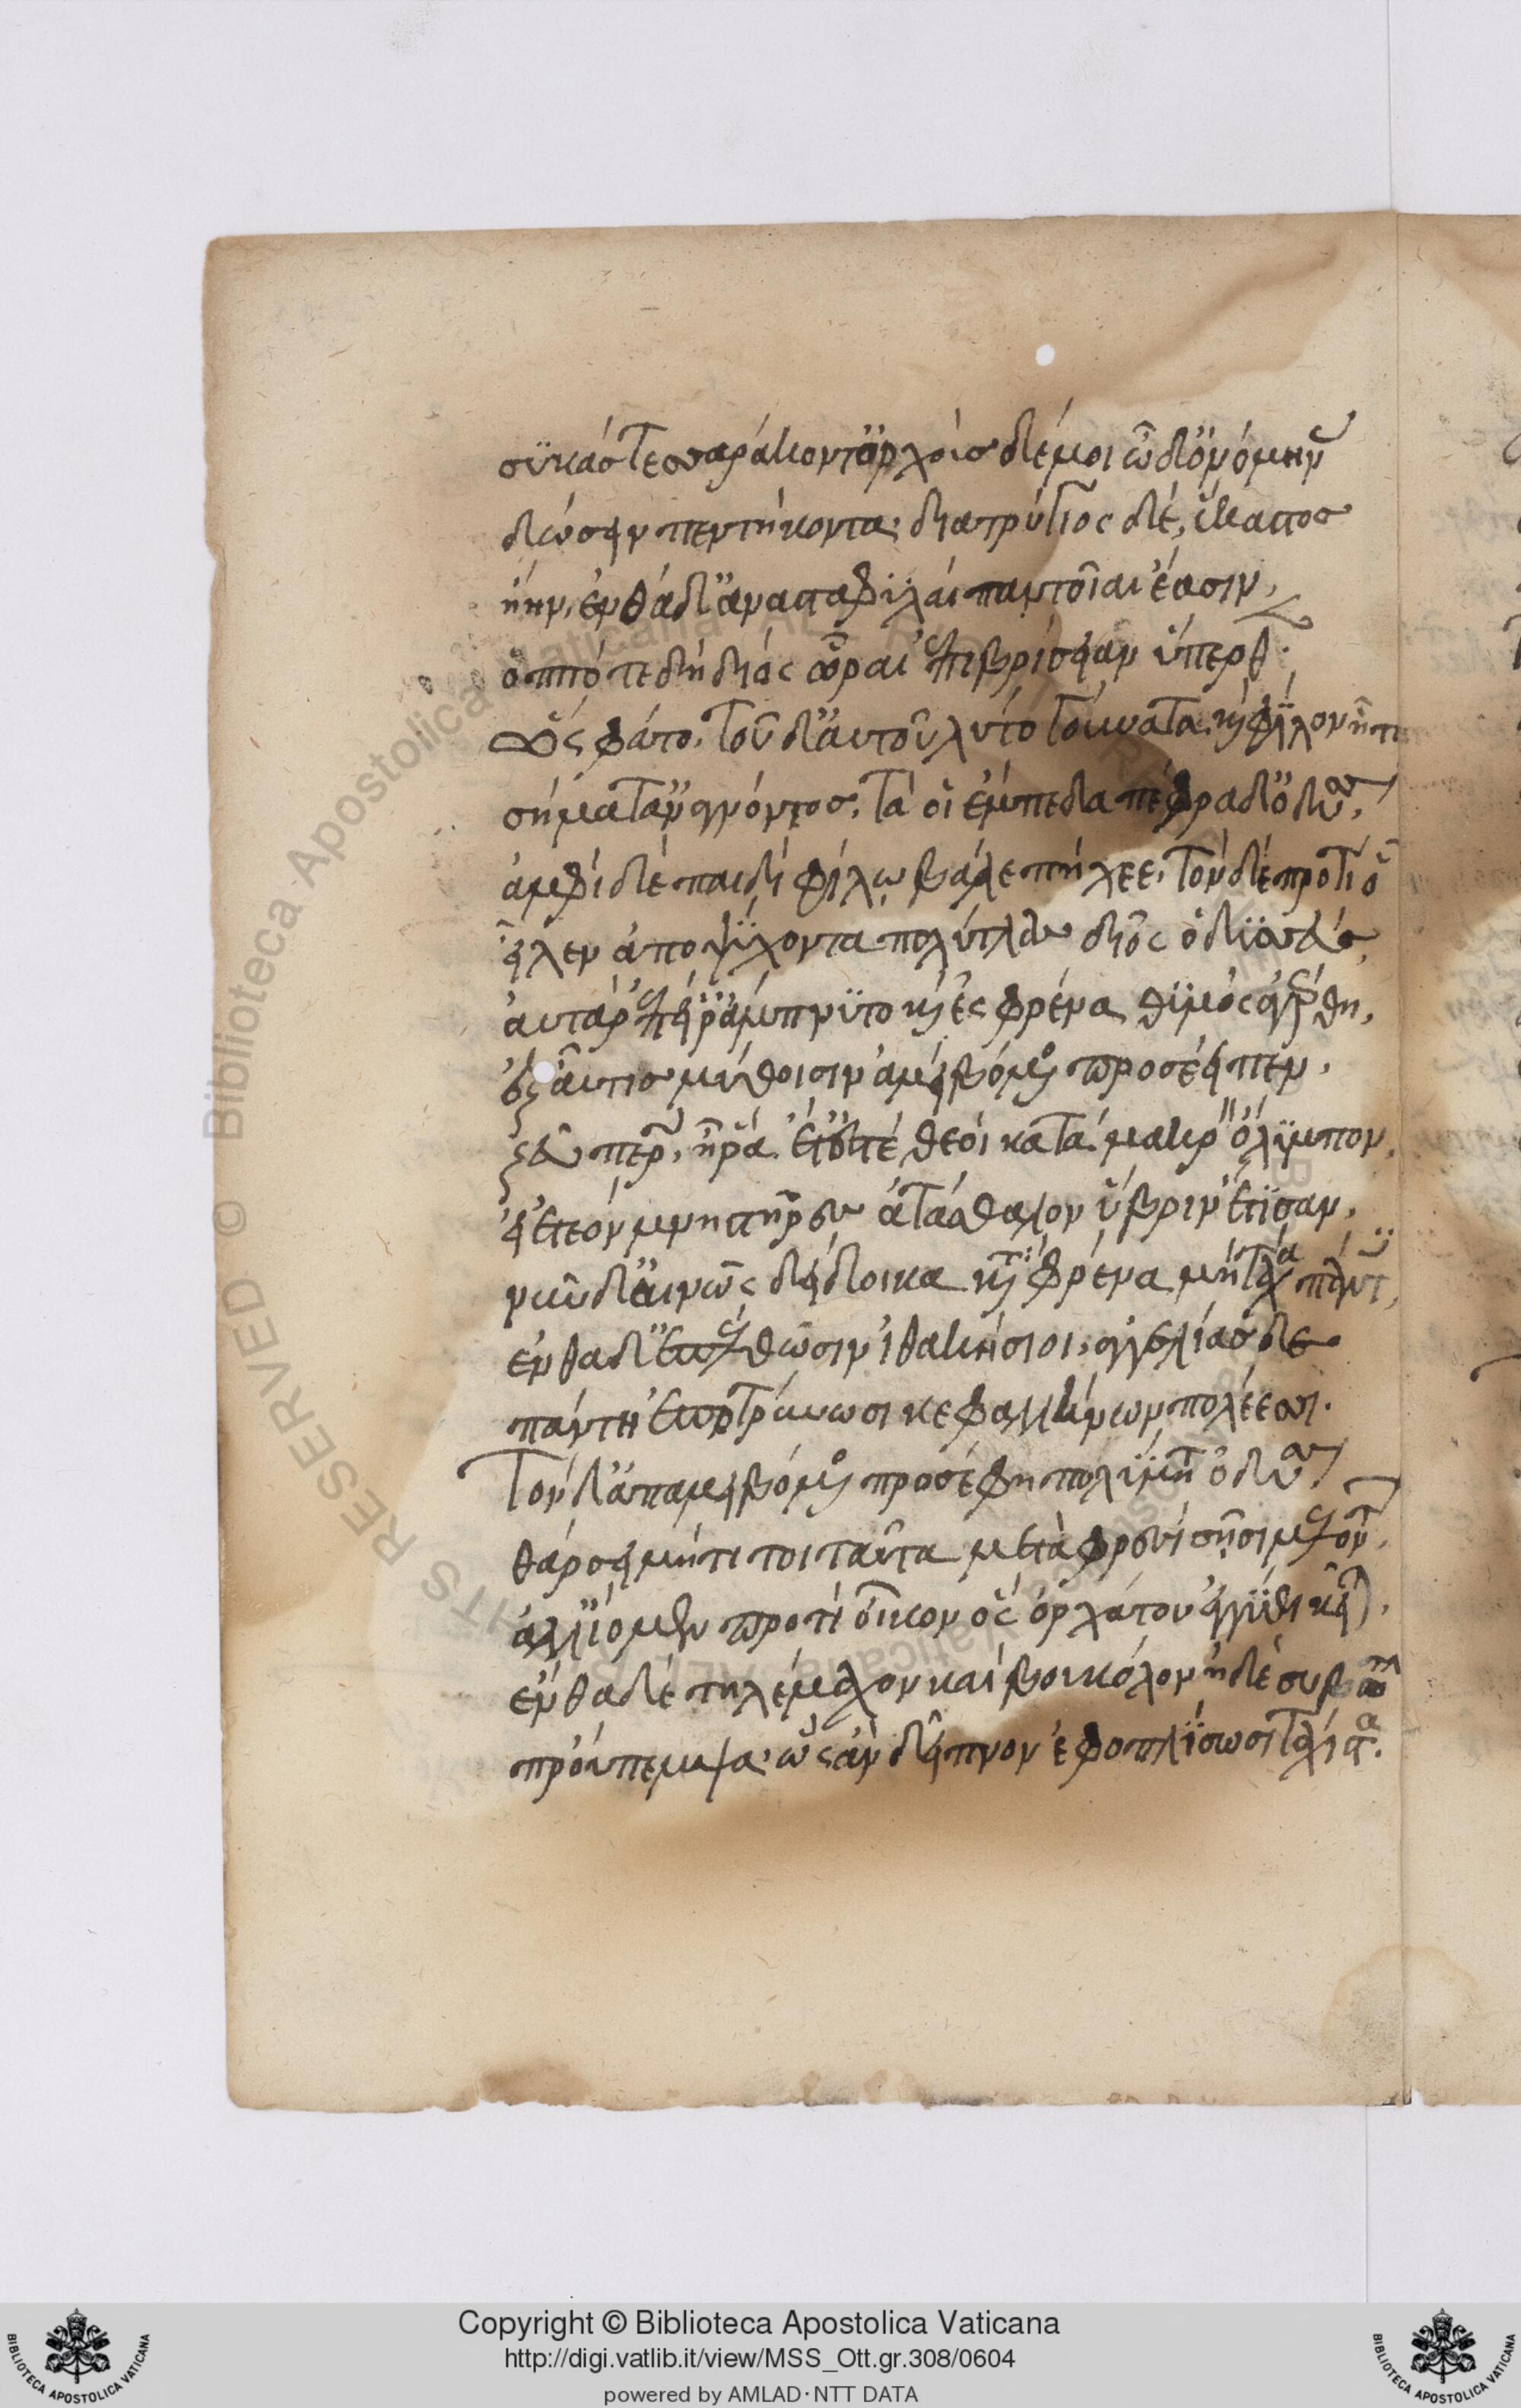 σῦκάς τεσσαράκοντ' ὄρχους δέ μοι ὧδ' ὀνόμηνας
δώσειν πεντήκοντα· διατρύγιος δὲ, ἕκαστος
ἤην, ἔνθα δ' ἀνασταφυλαὶ παντοῖαι ἔασιν,
ὁππότε δὴ διὸς ὧραι ἐπιβρίσειαν ὕπερθεν.
ὣς φάτο, τοῦ δ' αὐτοῦ λύτο γούνατα καὶ φίλον ἦτορ
σήματ' ἀναγνόντος, τά οἱ ἔμπεδα πέφραδ' ὀδυσσεύς,
ἀμφὶ δὲ παιδὶ φίλω βάλε πήχεε, τὸν δὲ προτὶ οἷ
εἷλεν ἀποψύχοντα πολύτλας δῖος ὀδυσσεύς,
αὐτὰρ ἐπεί ῥ' ἄμπνυτο καὶ ἐς φρένα θυμὸς ἀγέρθη,
ἐξαῦτις μύθοισιν ἀμειβόμενος προσέειπεν,
ζεῦ πάτερ, ἦ ῥα ἔτ' ἐστὲ θεοὶ κατὰ μακρὸν ὄλυμπον,
εἰ ἐτεὸν μνηστῆρες ἀτάσθαλον ὕβριν ἔτισαν,
νῦν δ' αἰνῶς δείδοικα κατὰ φρένα μὴ τάχα πάντες,
ἐνθάδ' ἐπέλθωσιν ἰθακήσιοι, ἀγγελίας δὲ
πάντη ἐποτρύνωσι κεφαλλήνων πολίεσσι.
Τὸν δ' ἀπαμειβόμενος προσέφη πολύμητις ὀδυσσεύς,
θάρσει μή τι τοι ταῦτα μετὰ φρεσὶ σῆσι μελόντων,
ἀλλ' ἴομεν προτὶ οἶκον ὃς ὀρχάτου ἐγγύθι κεῖται,
ἔνθα δὲ τηλέμαχον καὶ βουκόλον ἠδὲ συβώτην
προὔπεμψα· ὡς ἂν δεῖπνον ἐφοπλίσωσι τάχιστα.
Copyright © Biblioteca Apostolica Vaticana
http://digi.vatlib.it/view/MSS_Ott.gr.308/0604
powered by AMLAD·NTT DATA